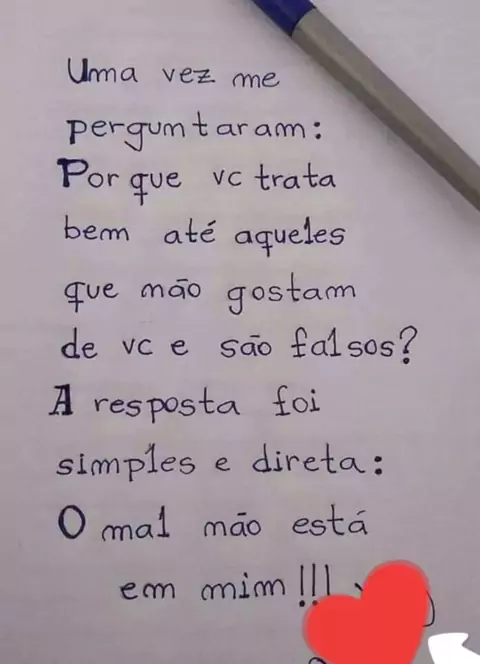 Uma vez me
perguntaram:
Por que vc trata
bem até aqueles
que não gostam
de vc e são falsos?
A resposta foi
simples e direta:
O mal não está
em mim!!!